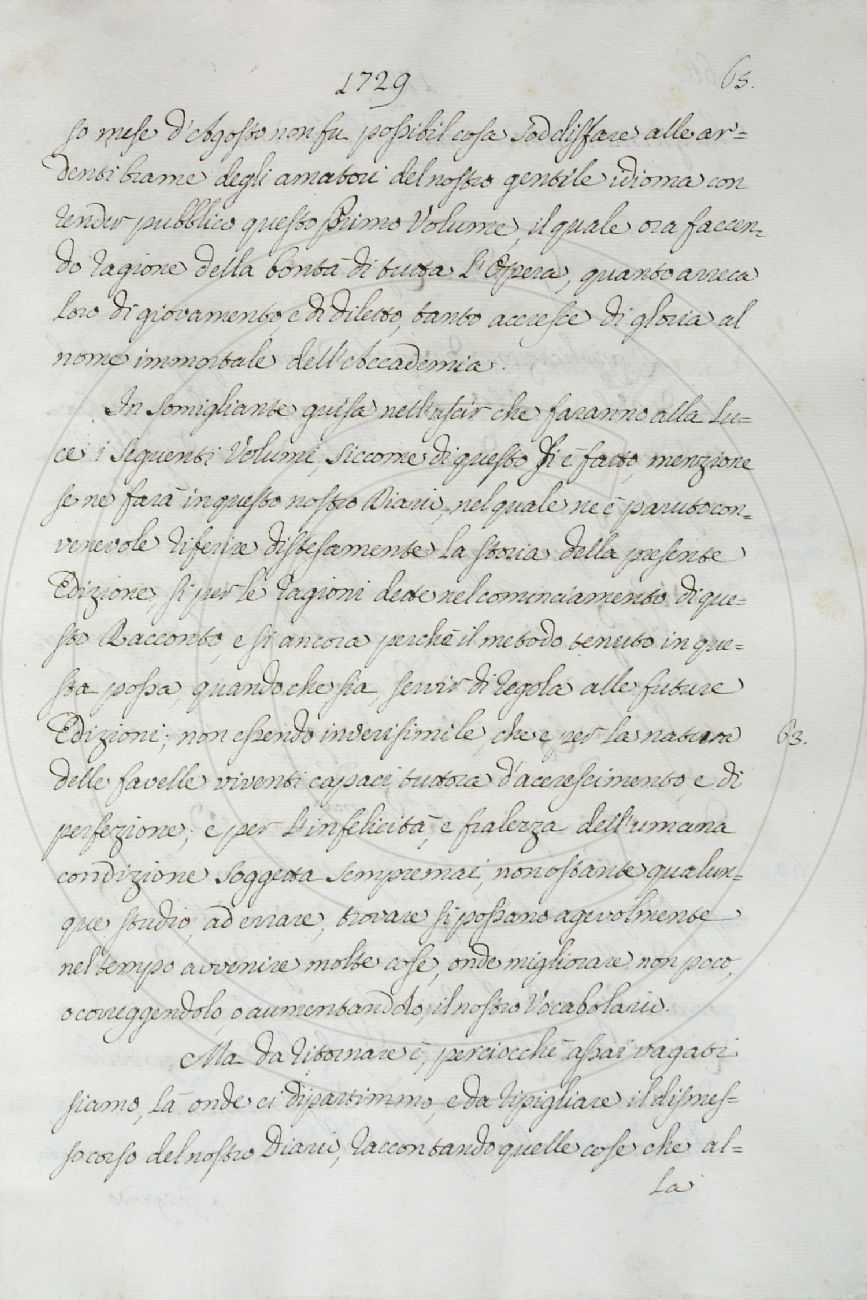 1729
65.
so mese d'Agosto non fu possibil cosa soddisfare alle ar=
denti brame degli amatori del nostro gentile idioma con
render pubblico questo Primo Volume, il quale ora faccen=
do ragione della bontà di tutta l'Opera, quanto arreca
loro di giovamento e di diletto, tanto accresce di gloria al
nome immortale dell'Accademia.
In somigliante guisa nell'uscir che faranno alla lu=
ce i seguenti Volumi, siccome di questo si è fatto, menzione
se ne farà in questo nostro Diario, nel quale ne è paruto con=
venevole riferire distesamente la storia della presente
Edizione, sì per le ragioni dette nel cominciamento di que=
sto Racconto, e sì ancora perchè il metodo tenuto in que=
sta possa, quando che sia, servir di regola alle future
Edizioni; non essendo inverisimile, che e per la natura
63.
delle favelle viventi capaci tuttora d'accrescimento, e di
perfezione; e per l'infelicità, e fralezza dell'umana
condizione soggetta sempremai, nonostante qualun=
que studio, ad errare, trovare si possano agevolmente
nel tempo avvenire molte cose, onde migliorare non poco,
o correggendolo, o aumentandolo, il nostro Vocabolario.
Ma da ritornare è, perciocchè assai vagati
siamo, là onde ci dipartimmo, e da ripigliare il dismes=
so corso del nostro Diario, raccontando quelle cose che al=
la